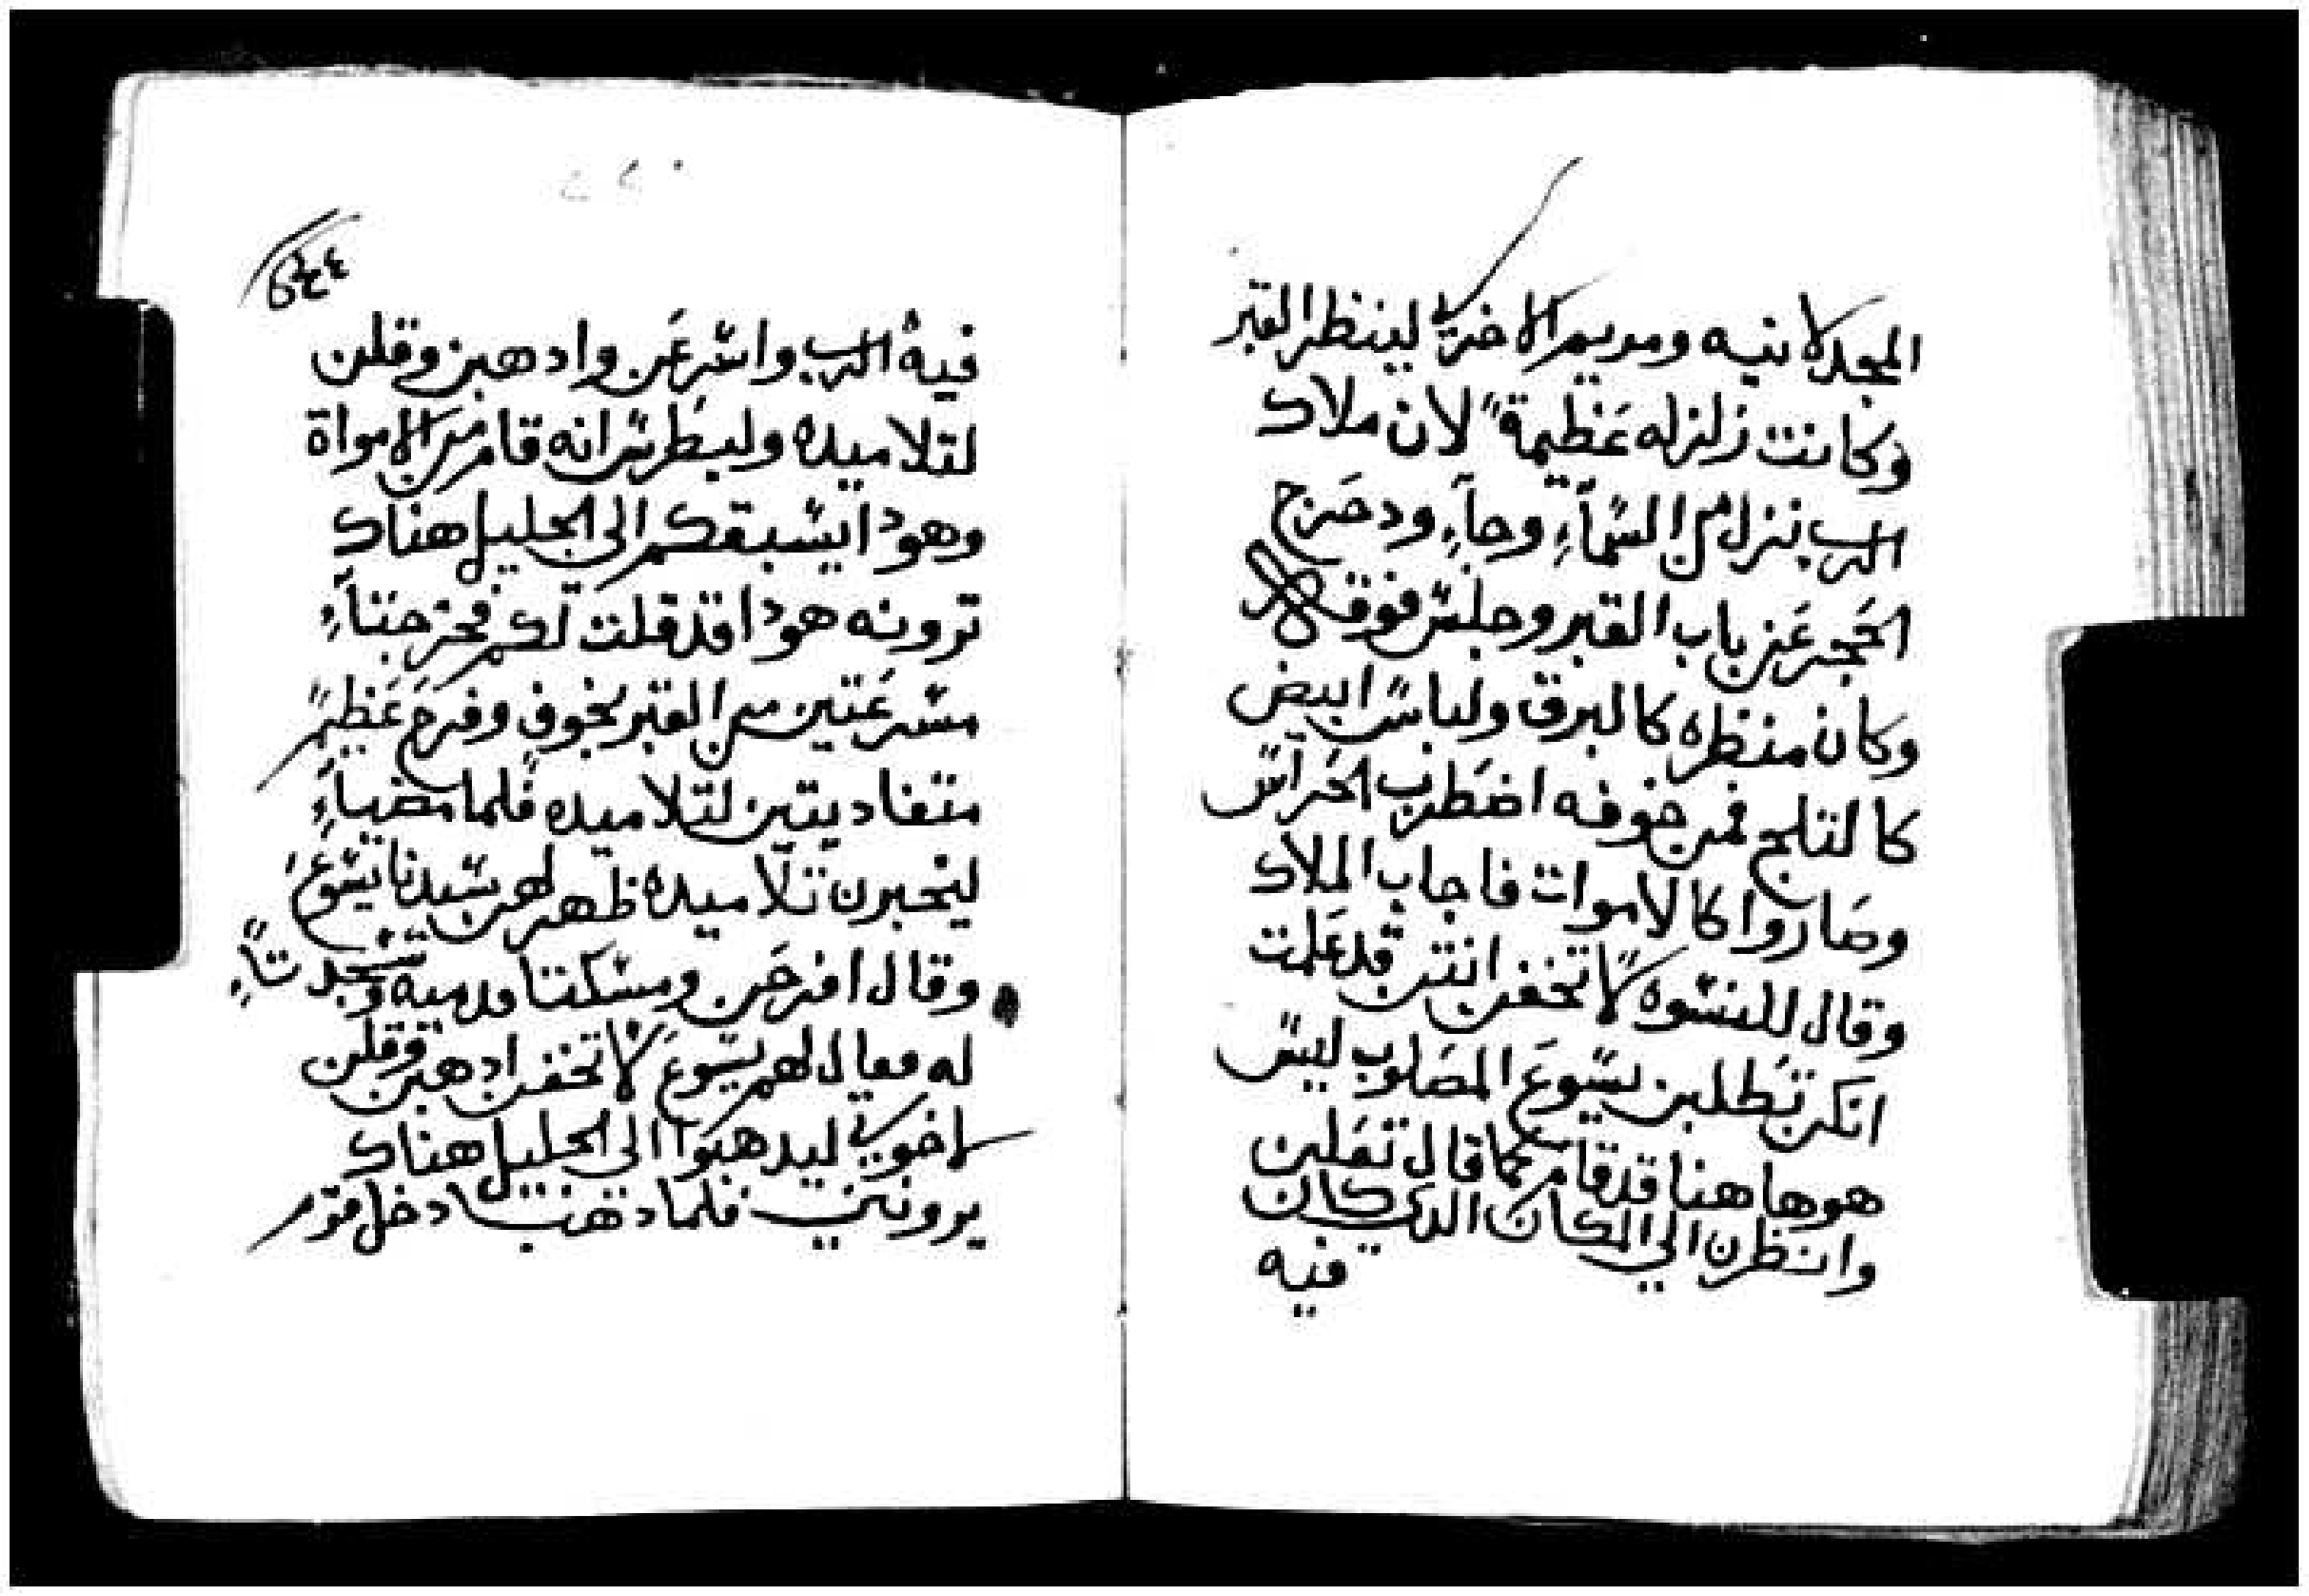 المجدلانيه ومريم الاخرى لينظر القبر
وكانت زلزله عظيمة لان ملاك
الرب نزل من السماء وجاء ودحرج
الحجر عن باب القبر وجلس فوقه
وكان منظره كالبرق ولباسه ابيض
كالتلج فمن خوفه اضطرب الحراس
وصاروا كالاموات فاجاب الملاك
وقال للنسوه لا تخفن انتن قد علمت
انكن تطلبن يسوع المصلوب ليس
هو هاهنا قد قام كما قال تعلين
وانظرن الى المكان الدي كان
فيه
فيه الرب واسرعن وادهبن وقلن
لتلاميده ولبطرس انه قام من الامواة
وهودا يسبقكم الى الجليل هناك
ترونه هودا قد قلت لكم فخرجتاء
مسرعتين من القبر بخوف وفرح عظيم
متغاديتين لتلاميده فلما مضياء
ليخبرن تلاميده ظهر لهن سيدنا يسوع
وقال افرحن ومسكتا قدميه وسجدتاء
له فقال لهم يسوع لا تخفن ادهبن وقلن
لاخوتي ليدهبوا الى الجليل هناك
يرونني فلما دهبتا دخل قوم